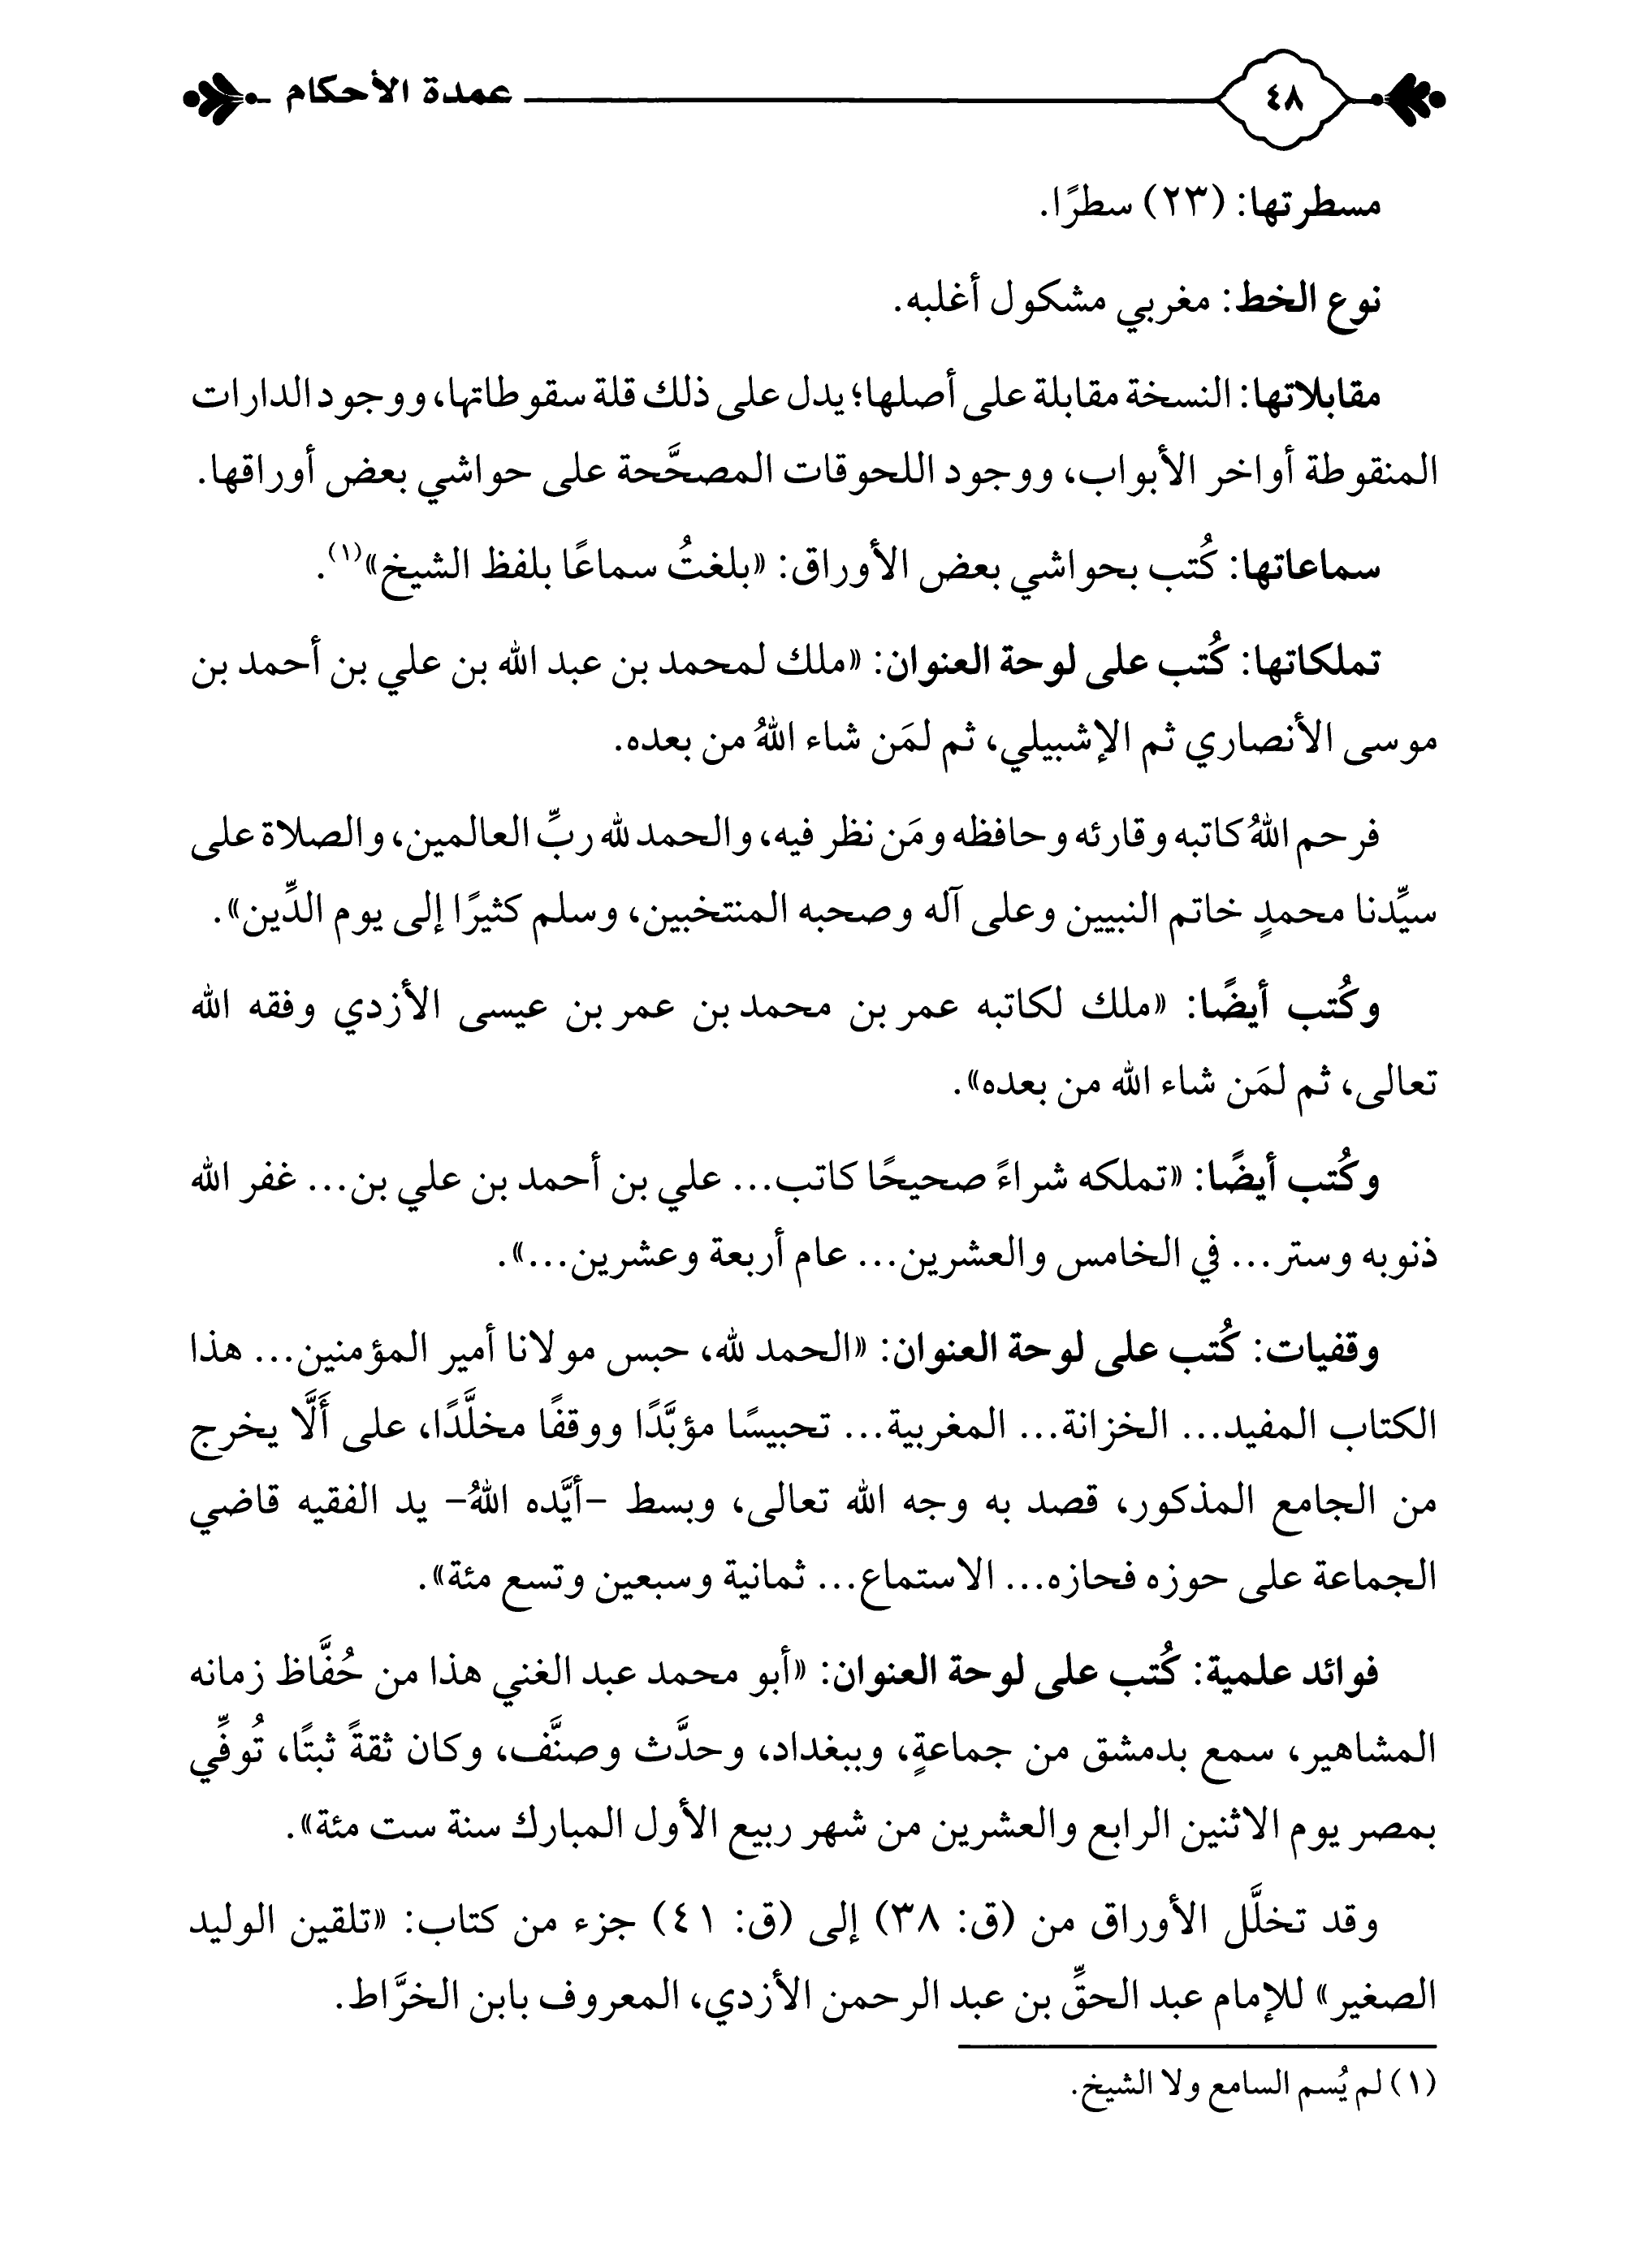 ٤٨ عمدة الأحكام
مسطرتها: (٢٣) سطرًا.
نوع الخط: مغربي مشكول أغلبه.
مقابلاتها: النسخة مقابلة على أصلها؛ يدل على ذلك قلة سقوطاتها، ووجود الدارات
المنقوطة أواخر الأبواب، ووجود اللحوقات المصحَّحة على حواشي بعض أوراقها.
سماعاتها: كُتب بحواشي بعض الأوراق: «بلغتُ سماعًا بلفظ الشيخ»(١).
تملكاتها: كُتب على لوحة العنوان: «ملك لمحمد بن عبد الله بن علي بن أحمد بن
موسى الأنصاري ثم الإشبيلي، ثم لمَن شاء اللهُ من بعده.
فرحم اللهُ كاتبه وقارئه وحافظه ومَن نظر فيه، والحمد لله ربِّ العالمين، والصلاة على
سيِّدنا محمدٍ خاتم النبيين وعلى آله وصحبه المنتخبين، وسلم كثيرًا إلى يوم الدِّين».
وكُتب أيضًا: «ملك لكاتبه عمر بن محمد بن عمر بن عيسى الأزدي وفقه الله
تعالى، ثم لمَن شاء الله من بعده».
وكُتب أيضًا: «تملكه شراءً صحيحًا كاتب... علي بن أحمد بن علي بن... غفر الله
ذنوبه وستر... في الخامس والعشرين... عام أربعة وعشرين...».
وقفيات: كُتب على لوحة العنوان: «الحمد لله، حبس مولانا أمير المؤمنين... هذا
الكتاب المفيد... الخزانة... المغربية... تحبيسًا مؤبَّدًا ووقفًا مخلَّدًا، على أَلَّا يخرج
من الجامع المذكور، قصد به وجه الله تعالى، وبسط -أيَّده اللهُ- يد الفقيه قاضي
الجماعة على حوزه فحازه... الاستماع... ثمانية وسبعين وتسع مئة».
فوائد علمية: كُتب على لوحة العنوان: «أبو محمد عبد الغني هذا من حُفَّاظ زمانه
المشاهير، سمع بدمشق من جماعةٍ، وببغداد، وحدَّث وصنَّف، وكان ثقةً ثبتًا، تُوفِّي
بمصر يوم الاثنين الرابع والعشرين من شهر ربيع الأول المبارك سنة ست مئة».
وقد تخلَّل الأوراق من (ق: ٣٨) إلى (ق: ٤١) جزء من كتاب: «تلقين الوليد
الصغير» للإمام عبد الحقِّ بن عبد الرحمن الأزدي، المعروف بابن الخرَّاط.
(١) لم يُسم السامع ولا الشيخ.